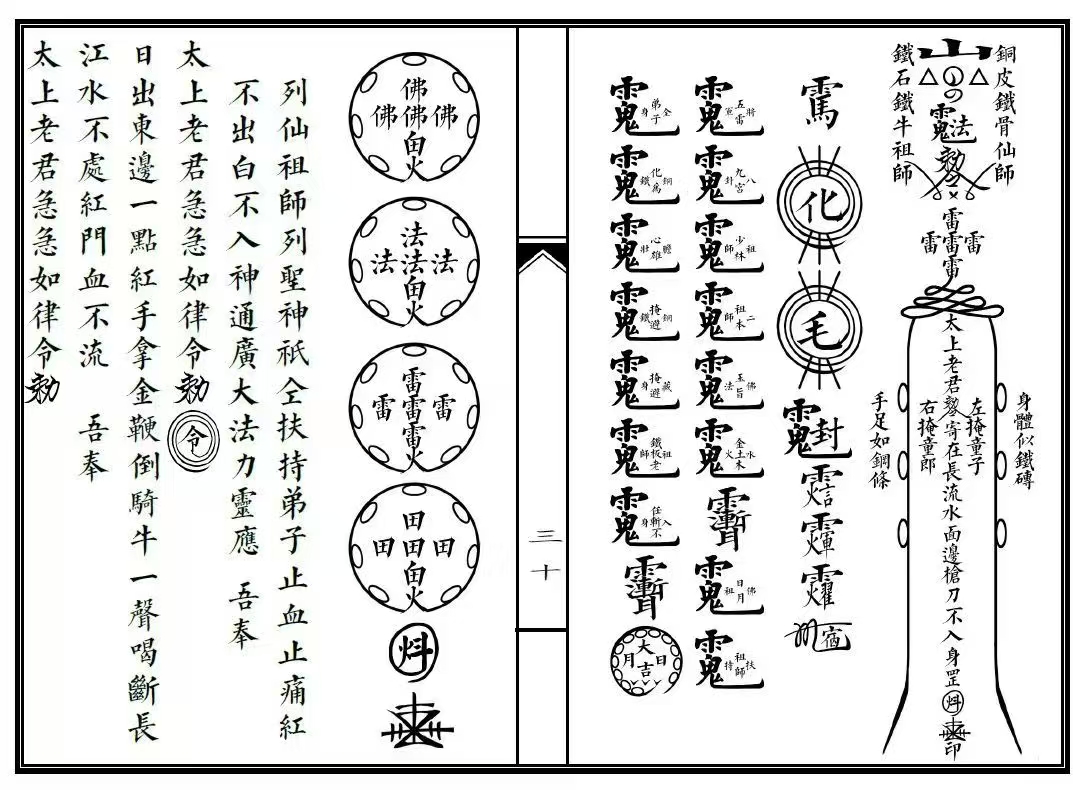 銅皮鐵骨仙師
鐵石鐵牛祖師
法
勅
雷
雷雷雷
雷
身體似鐵磚
左掩童子
太上老君勅寄在長流水面邊槍刀不入身罡炓
印
右掩童郎
手足如鋼條
化
毛
封
五雷將軍
九宮八卦
少林祖師
祖本二師
玉旨佛法
金土木水火
日月佛祖
祖師扶持
弟子全身
化為銅鐵
心雄膽壯
掩避銅鐵
掩避藏身
鐵板老祖師
任斬不入身
大吉日月
三十
佛
佛佛佛
法
法法法
雷
雷雷雷
雷
田
田田田
炓
列仙祖師列聖神祇仝扶持弟子止血止痛紅
不出白不入神通廣大法力靈應 吾奉
太上老君急急如律令勅令
日出東邊一點紅手拿金鞭倒騎牛一聲喝斷長
江水不處紅門血不流 吾奉
太上老君急急如律令勅